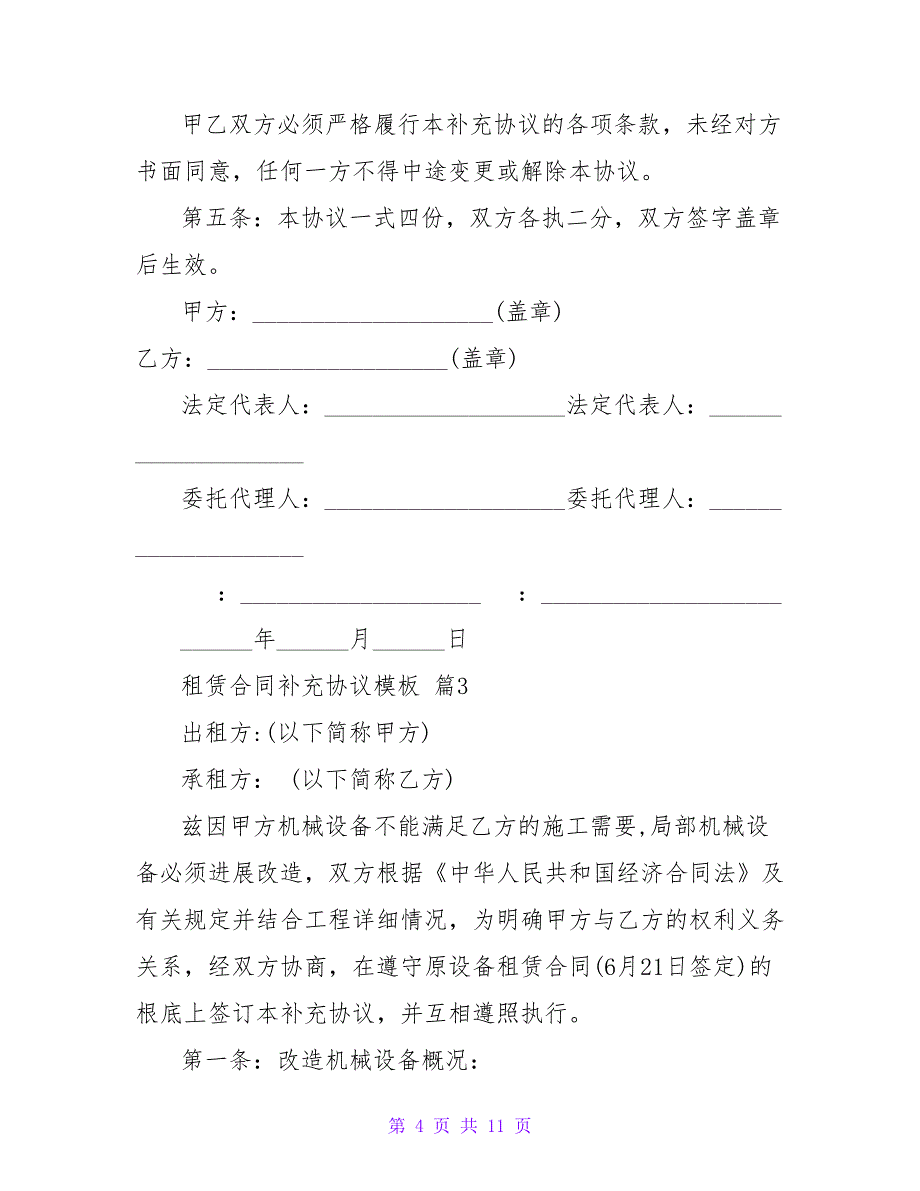 甲乙双方必须严格履行本补充协议的各项条款，未经对方
书面同意，任何一方不得中途变更或解除本协议。
第五条：本协议一式四份，双方各执二分，双方签字盖章
后生效。
甲方：____________________(盖章)
乙方：____________________(盖章)
法定代表人：____________________法定代表人：______
______________
委托代理人：____________________委托代理人：______
______________
：____________________ ：____________________
______年______月______日
租赁合同补充协议模板 篇3
出租方:(以下简称甲方)
承租方： (以下简称乙方)
兹因甲方机械设备不能满足乙方的施工需要,局部机械设
备必须进展改造，双方根据《中华人民共和国经济合同法》及
有关规定并结合工程详细情况，为明确甲方与乙方的权利义务
关系，经双方协商，在遵守原设备租赁合同(6月21日签定)的
根底上签订本补充协议，并互相遵照执行。
第一条：改造机械设备概况：
第 4 页 共 11 页